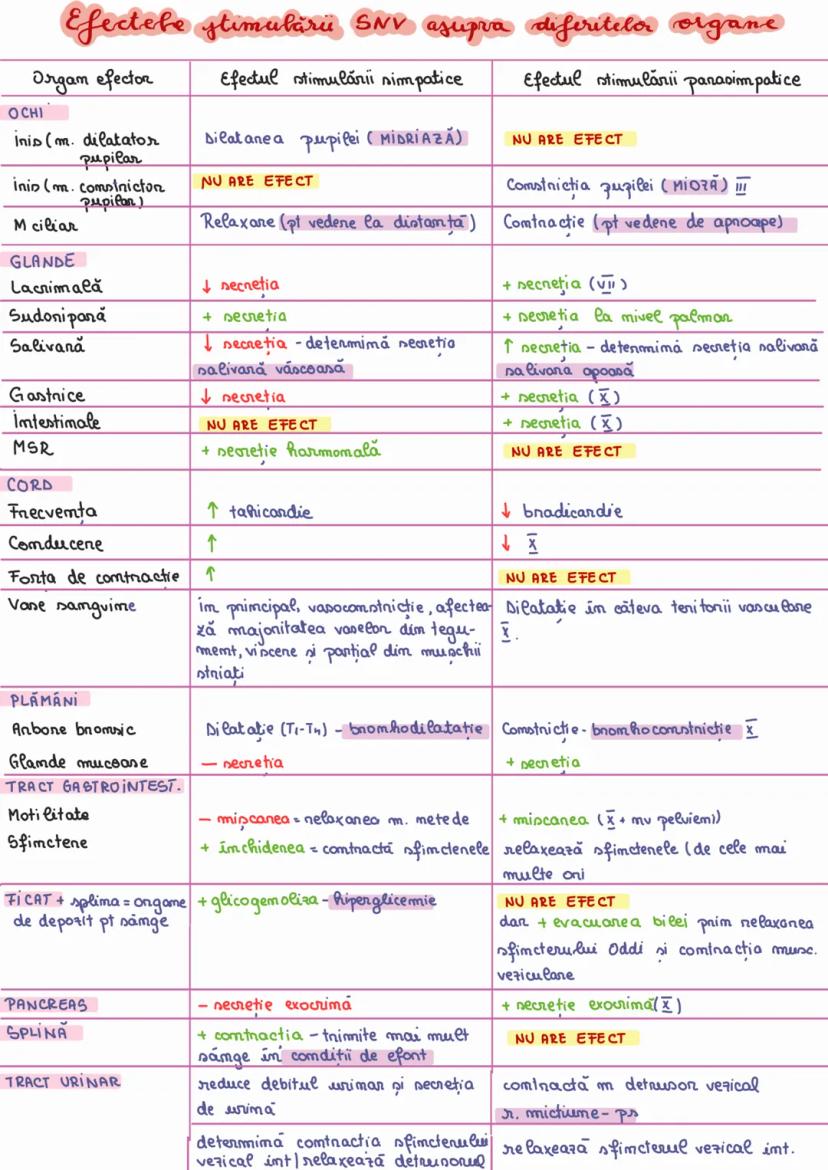 Efectele stimulării SNV asupra diferitelor organe
Organ efector
Efectul stimulării simpatice
Efectul stimulării parasimpatice
OCHI
iris (m. dilatator
pupilar
Dilatarea pupilei (MIDRIAZĂ)
NU ARE EFECT
iris (m. constrictor
pupilar)
NU ARE EFECT
Constricția pupilei (MIOZĂ) III
M ciliar
Relaxare (pt vedere la distanță)
Contracție (pt vedere de aproape)
GLANDE
Lacrimală
↓ secreția
+ secreția (VII)
Sudoripară
+ secreția
+ secreția la nivel palmar
Salivară
↓ secreția - determină secreția
salivară vâscoasă
↑ secreția - determină secreția salivară
salivara apoasă
Gastrice
↓ secreția
+ secreția (X)
Intestinale
NU ARE EFECT
+ secreția (X)
MSR
+ secreție hormonală
NU ARE EFECT
CORD
Frecvența
↑ tahicardie
↓ bradicardie
Conducere
↑
↓ X
Forța de contracție
↑
NU ARE EFECT
Vase sanguine
în principal, vasoconstricție, afectea-
ză majoritatea vaselor din tegu-
ment, viscere și parțial din mușchii
striați
Dilatație în câteva teritorii vasculare
X.
PLĂMÂNI
Arbore bronsic
Dilatație (T1-T4) - bronhodilatație
Constricție - bronhoconstricție X
Glande mucoase
– secreția
+ secreția
TRACT GASTROINTEST.
Motilitate
– mișcarea = relaxarea m. netede
+ miscarea (X + nv pelvieni)
Sfinctere
+ închiderea = contractă sfincterele
relaxează sfincterele (de cele mai
multe ori
FICAT + splina = organe
de depozit pt sânge
+ glicogenoliza - hiperglicemie
NU ARE EFECT
dar + evacuarea bilei prin relaxarea
sfincterului Oddi și contracția musc.
veziculare
PANCREAS
– secreție exocrină
+ secreție exocrină (X)
SPLINĂ
+ contractia - trimite mai mult
sânge în condiții de efort
NU ARE EFECT
TRACT URINAR
reduce debitul urinar și secreția
de urină
contractă m detrusor vezical
r. mictiune - ps
determină contractia sfincterului
vezical int | relaxează detrusorul
relaxează sfincterul vezical int.